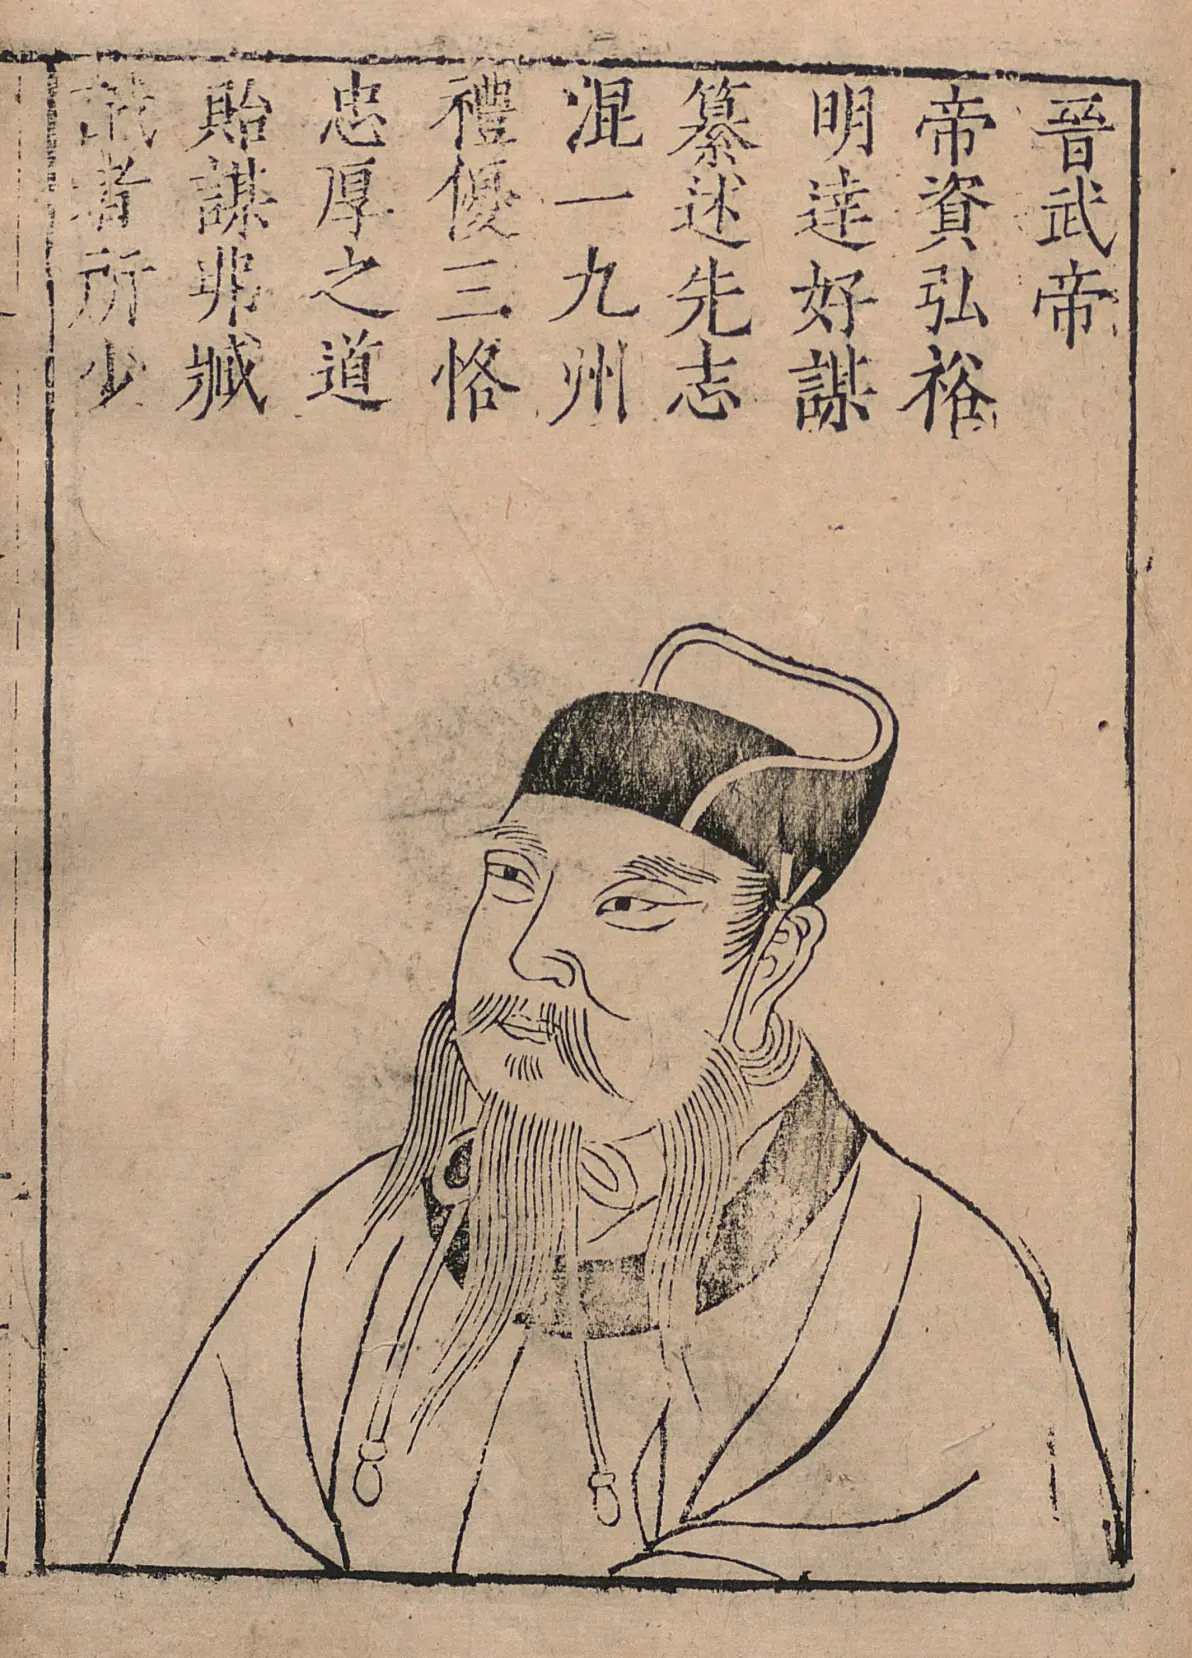 晉武帝
帝資弘裕
明達好謀
纂述先志
混一九州
禮優三恪
忠厚之道
貽謀非臧
識者所少